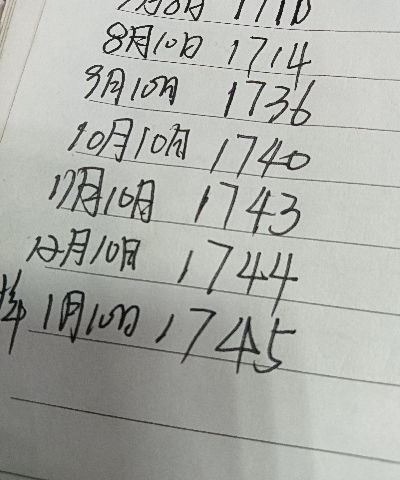 月8日 1710
8月10日 1714
9月10日 1736
10月10日 1740
11月10日 1743
12月10日 1744
1月10日 1745